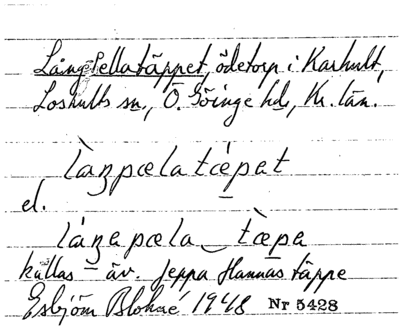 Långpellatäppet, ödetorp i Karhult,
Loshults sn., Ö. Göinge hd., Kr. län.
làŋpælatɛ́pət
el.
láŋapæla‿tæ̀pa
kallas äv. Jeppa Hannas täppe
Esbjörn 1948 Nr 5428